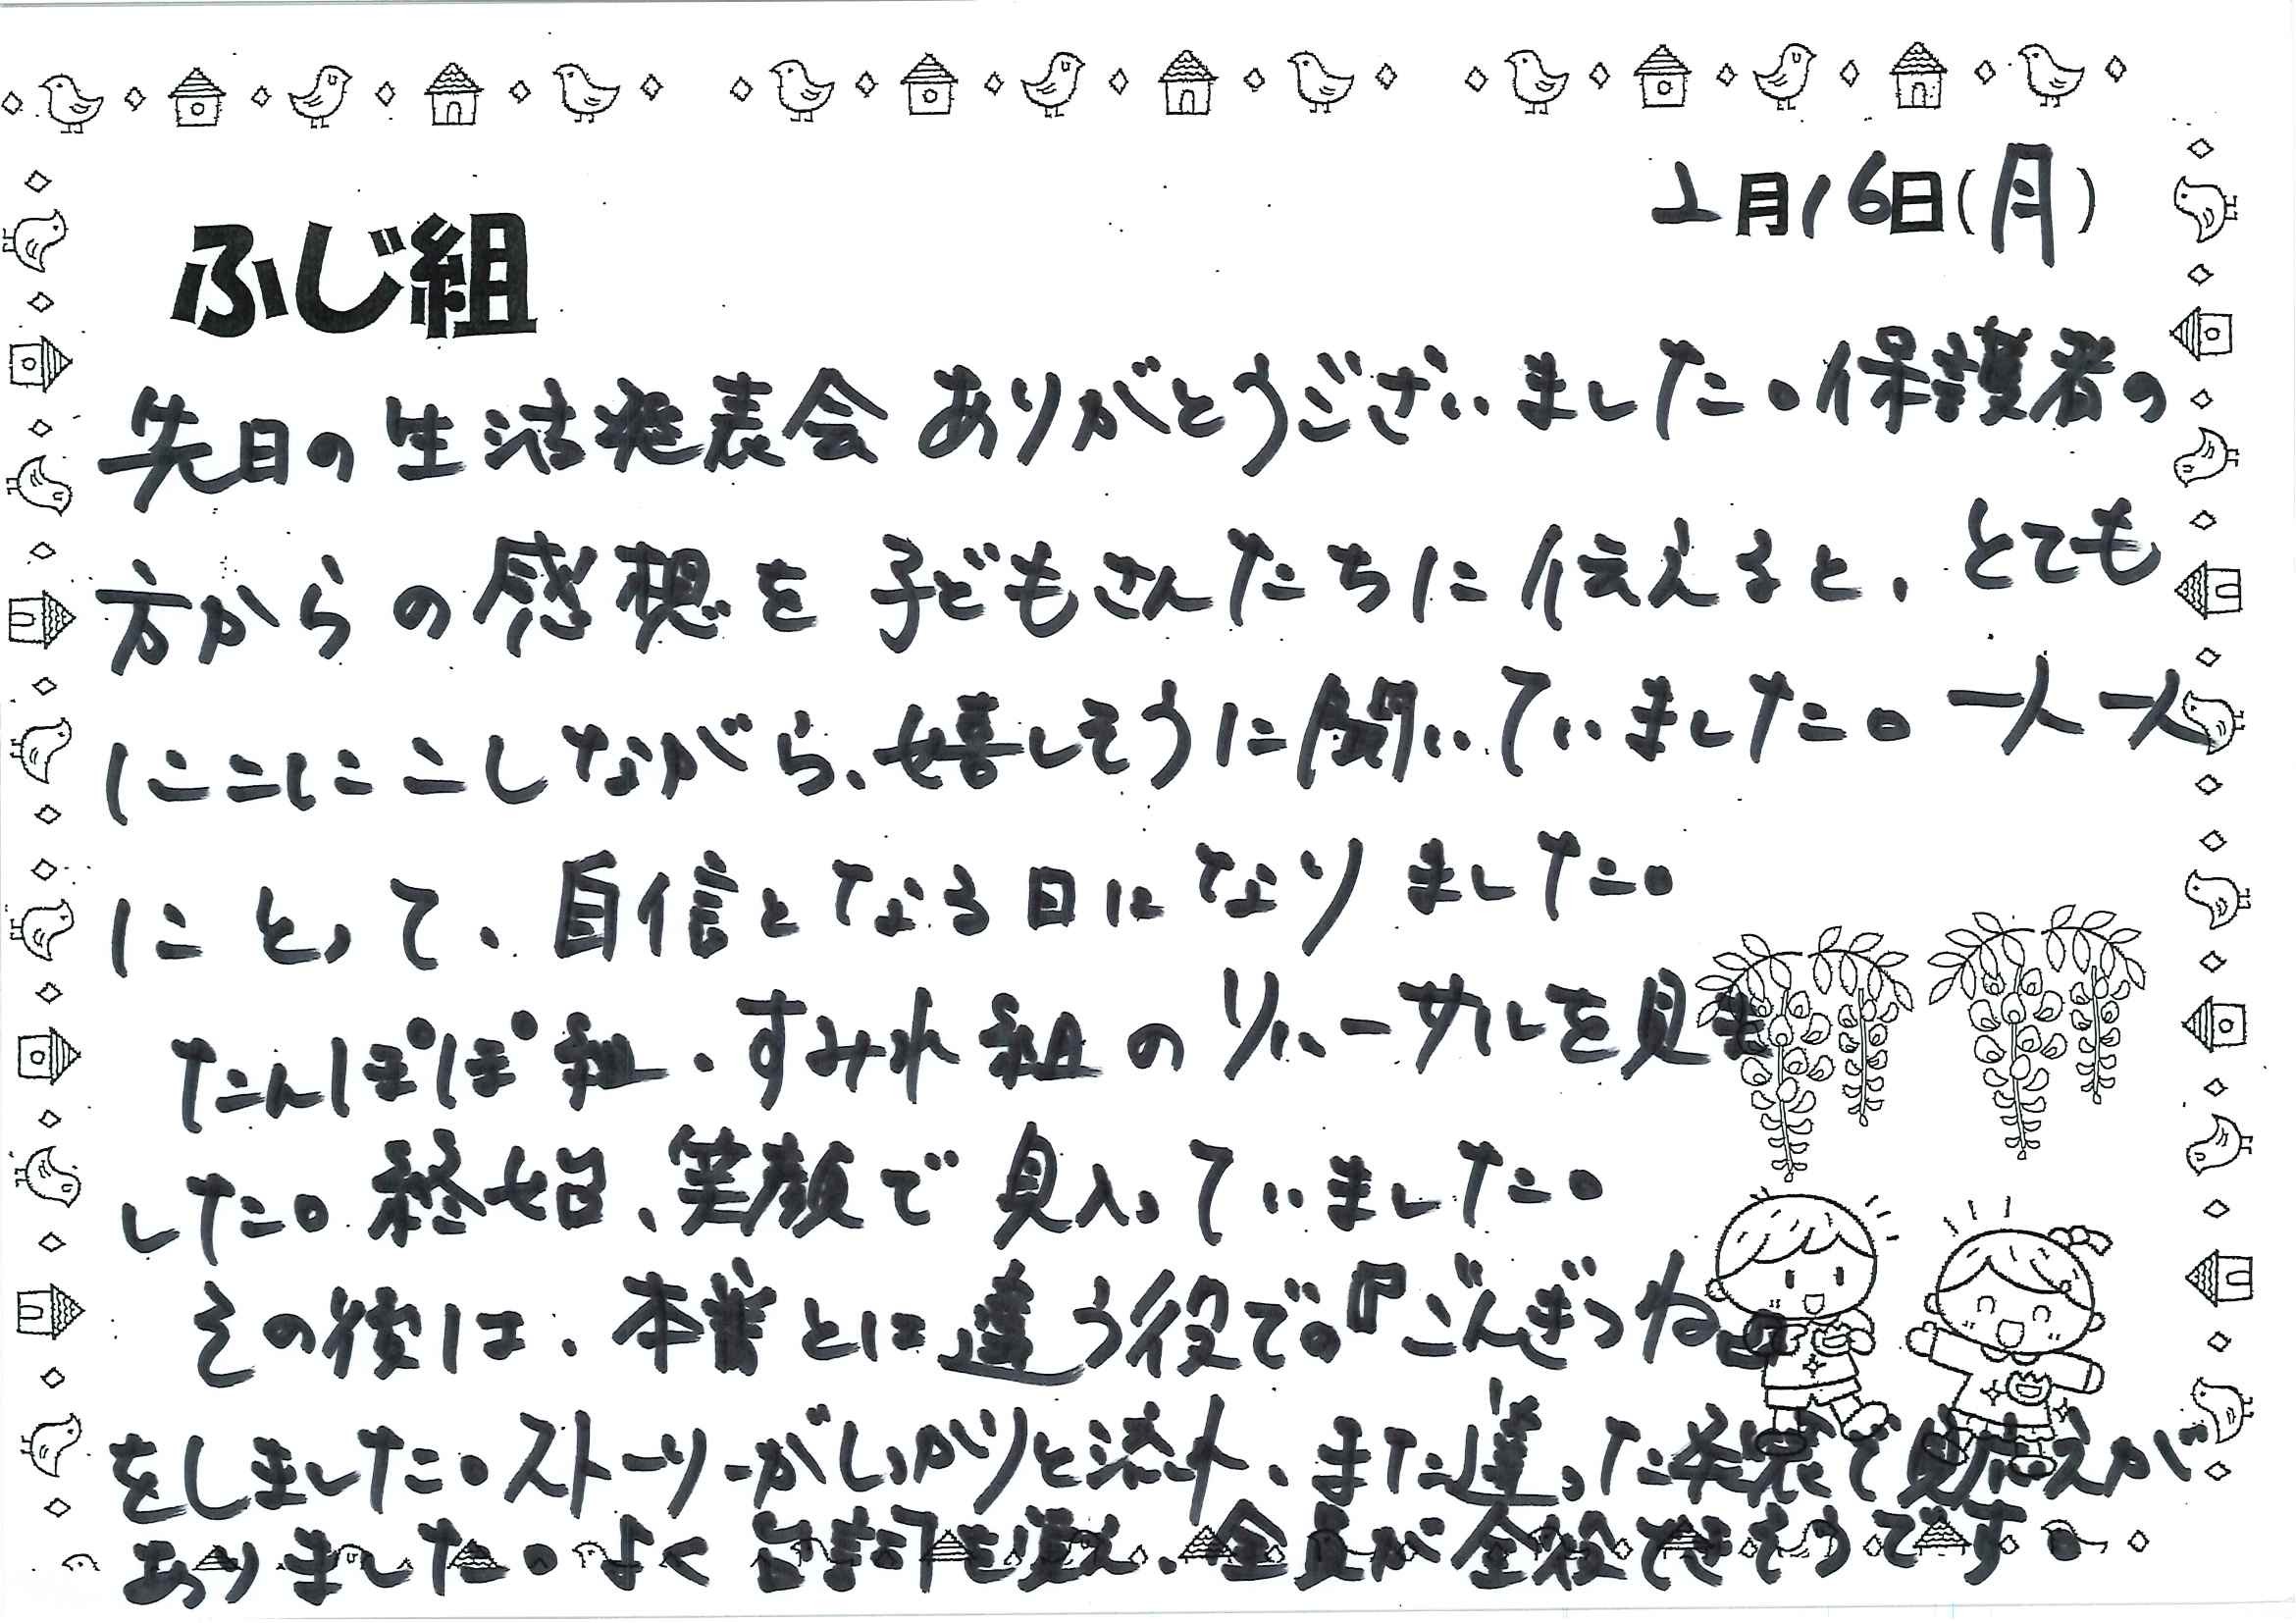 2月16日(月)
ふじ組
先日の生活発表会ありがとうございました。保護者の
方からの感想を子どもさんたちに伝えると、とても
にこにこしながら、嬉しそうに聞いていました。一人一人
にとって、自信となる日になりました。
たんぽぽ組、すみれ組のリハーサルを見ま
した。終始、笑顔で見入っていました。
その後は、本番とは違う役で。『ごんぎつね』
をしました。ストーリーがしっかりと流れ、また違った発表で見応えが
ありました。よく台詞を覚え、全員が全役できそうです。